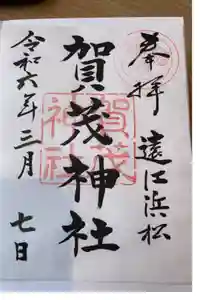 奉拝
遠江浜松
賀茂神社
賀茂
神社
令和六年三月
七日